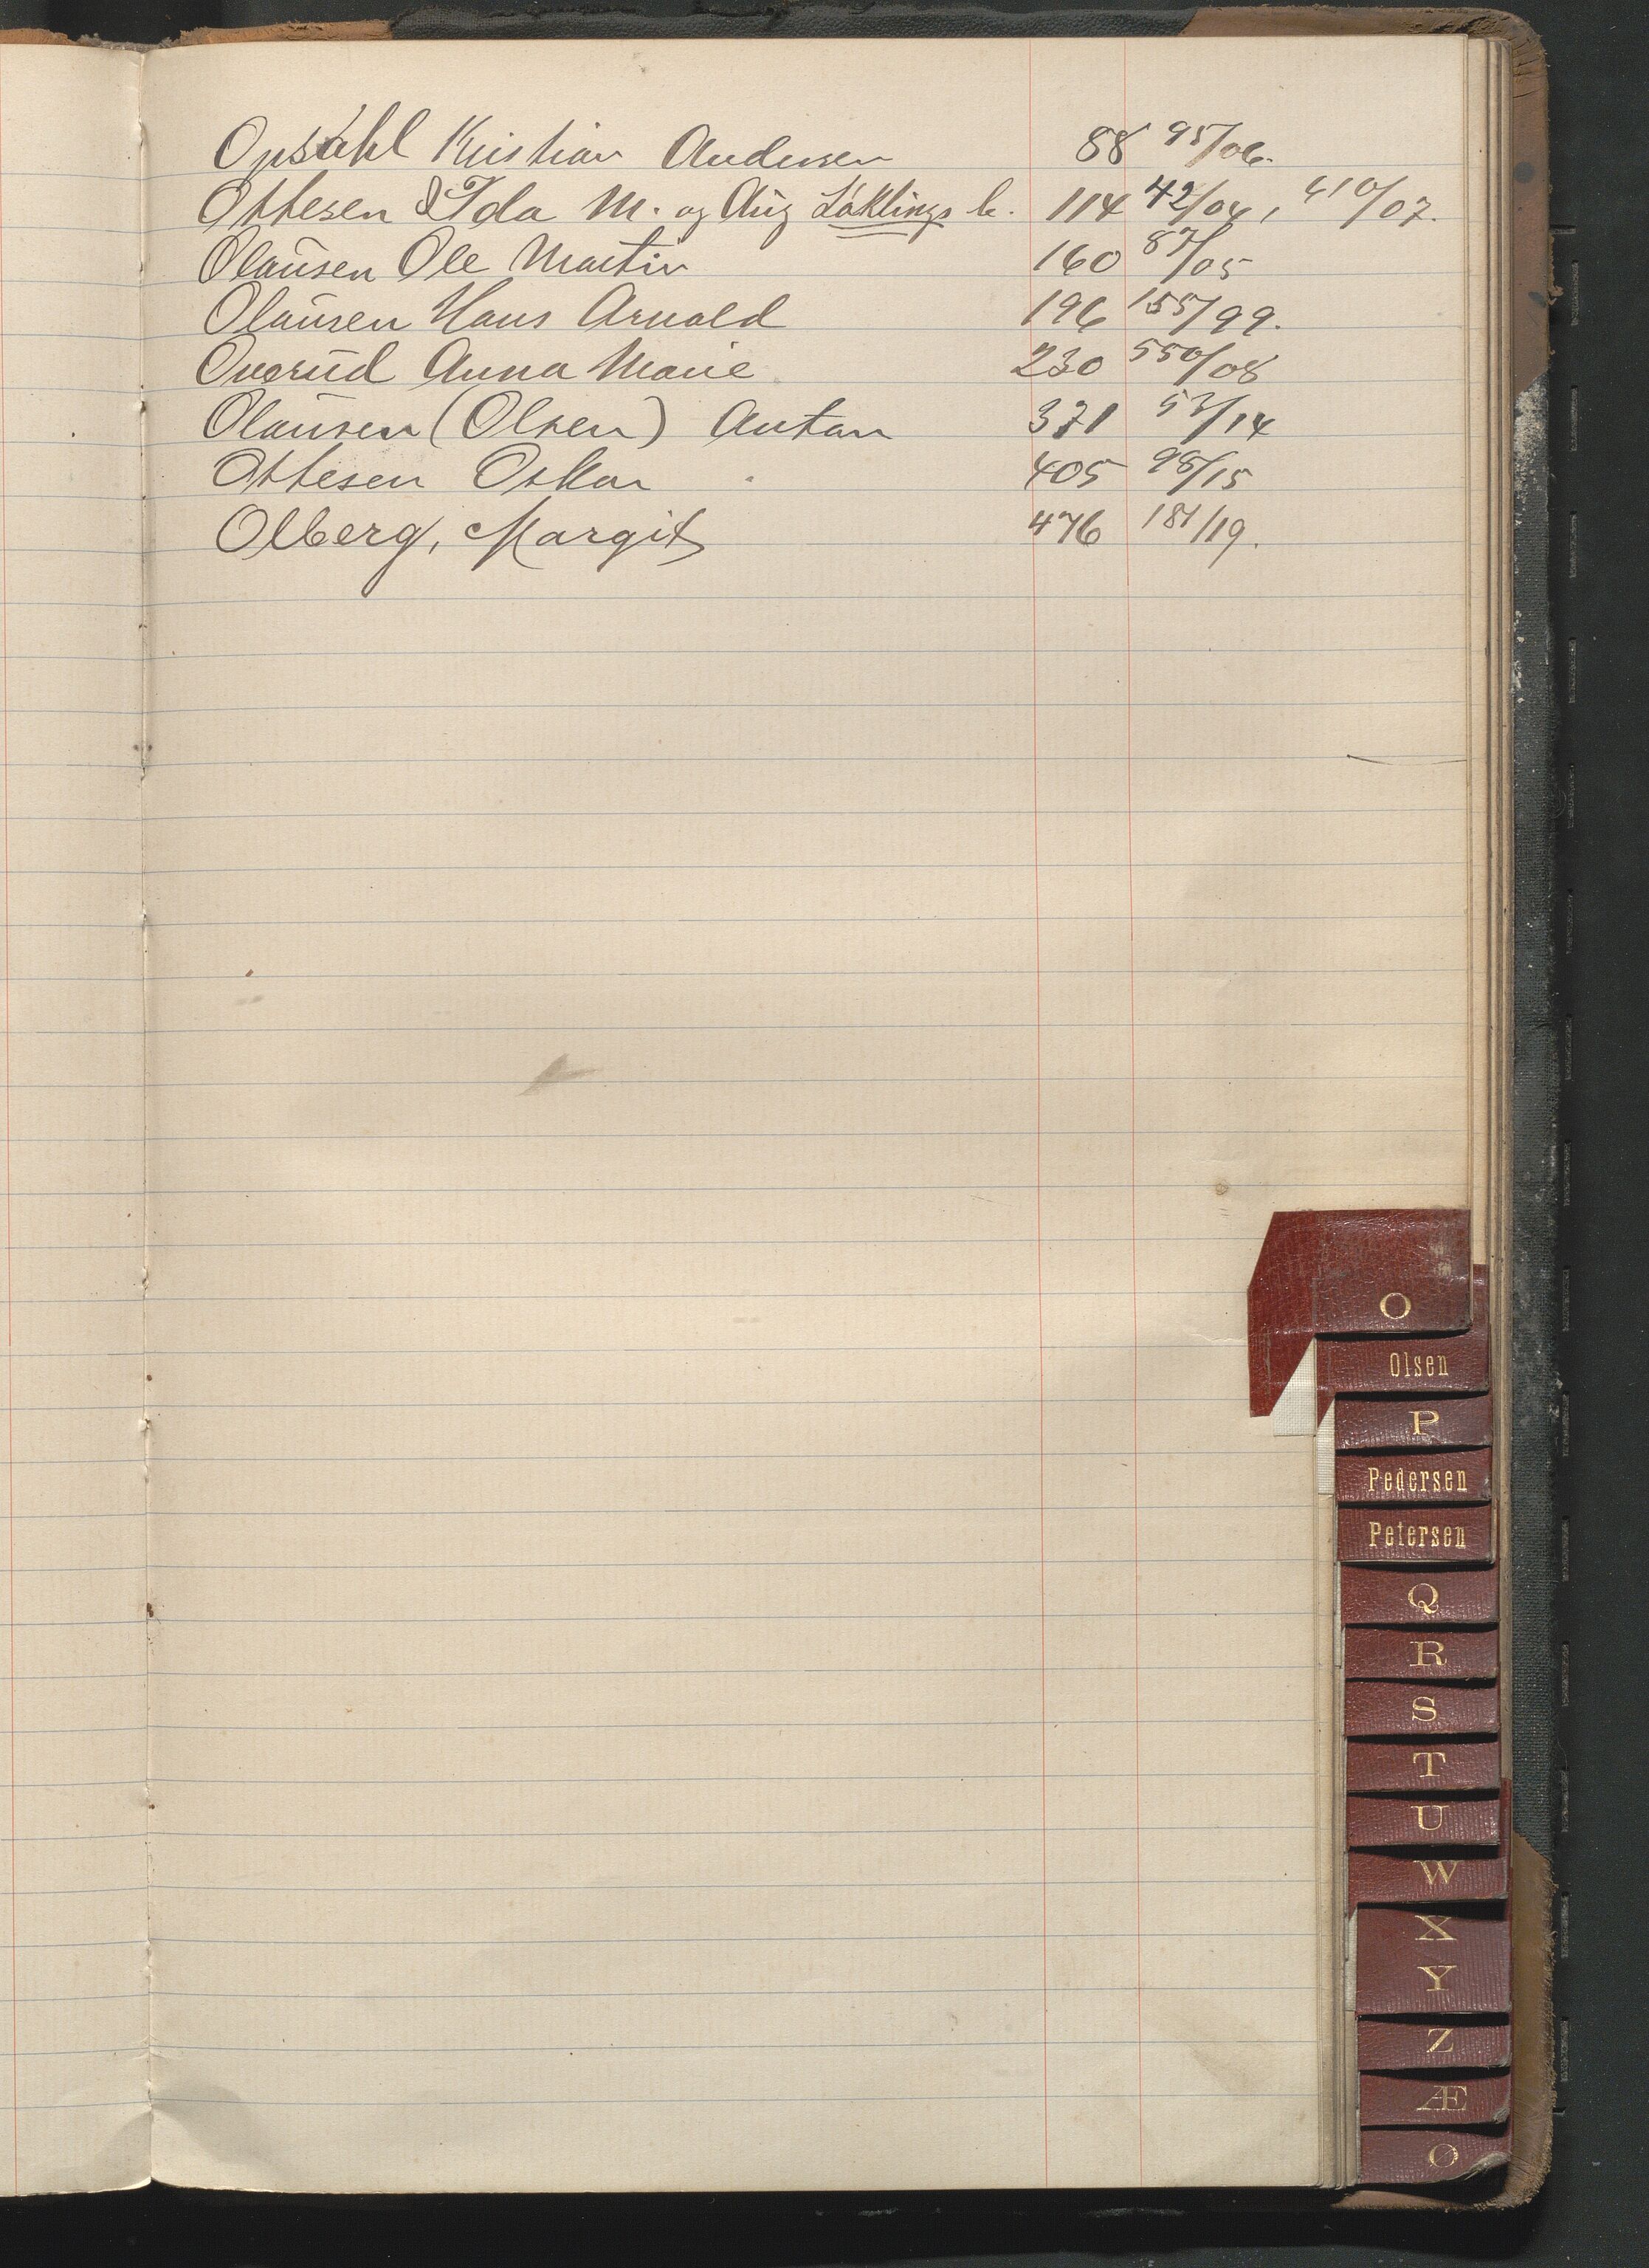 Opsahl Kristian Andersen 88 95/06.
Ottesen Ida M. og Aug Løklings b. 114 42/04, 410/07.
Olausen Ole Martin 160 87/05
Olausen Hans Arnold 196 155/99.
Overud Anna Marie 230 550/08
Olausen (Olsen) Anton 371 53/14
Ottesen Oskar 405 98/15
Olberg, Margit 476 181/19.
O
Olsen
P
Pedersen
Petersen
Q
R
S
T
U
W
X
Y
Z
Æ
Ø